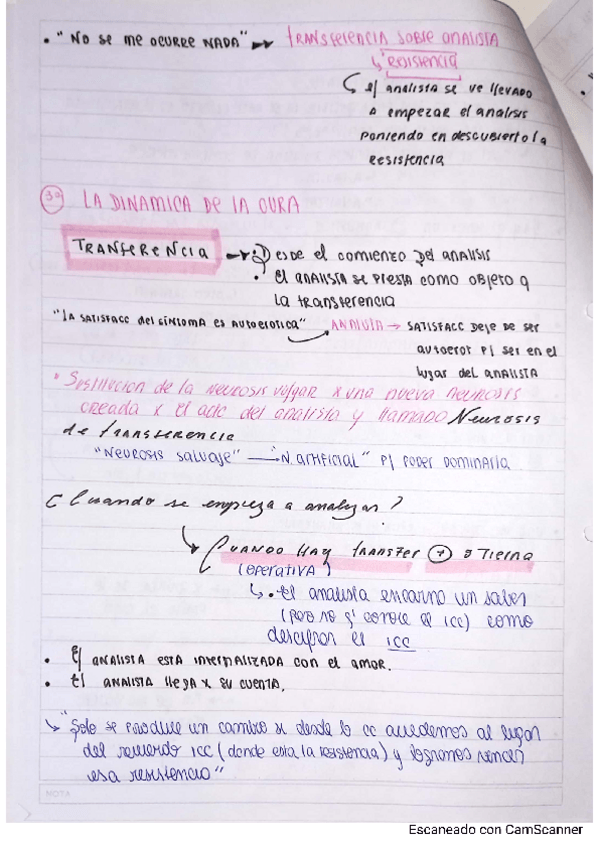 • "No se me ocurre nada" → transferencia sobre analista
↳ resistencia
↳ el analista se ve llevado
a empezar el analisis
poniendo en descubierto la
resistencia
3º LA DINAMICA DE LA CURA
TRANFERENCIA → • Desde el comienzo del analisis
• el analista se presta como objeto a
la transferencia
"la satisfacc del síntoma es autoerotica" ANALISTA → satisfacc deje de ser
autoerot p/ ser en el
lugar del analista
• Sustitucion de la neurosis vulgar x una nueva neurosis
creada x el acto del analista y llamado Neurosis
de transferencia
"Neurosis salvaje" → N. artificial" p/ poder dominarla
¿Cuando se empieza a analizar?
↳ Cuando hay transfer (+) o tierna
(operativa)
↳ • el analista encarna un saber
(pero no q' conoce el icc) como
descifrar el icc
• El analista esta internalizada con el amor.
• El analista llega x su cuenta.
↳ "Solo se produce un cambio si desde lo cc accedemos al lugar
del recuerdo icc (donde esta la resistencia) y logramos vencer
esa resistencia"
NOTA
Escaneado con CamScanner